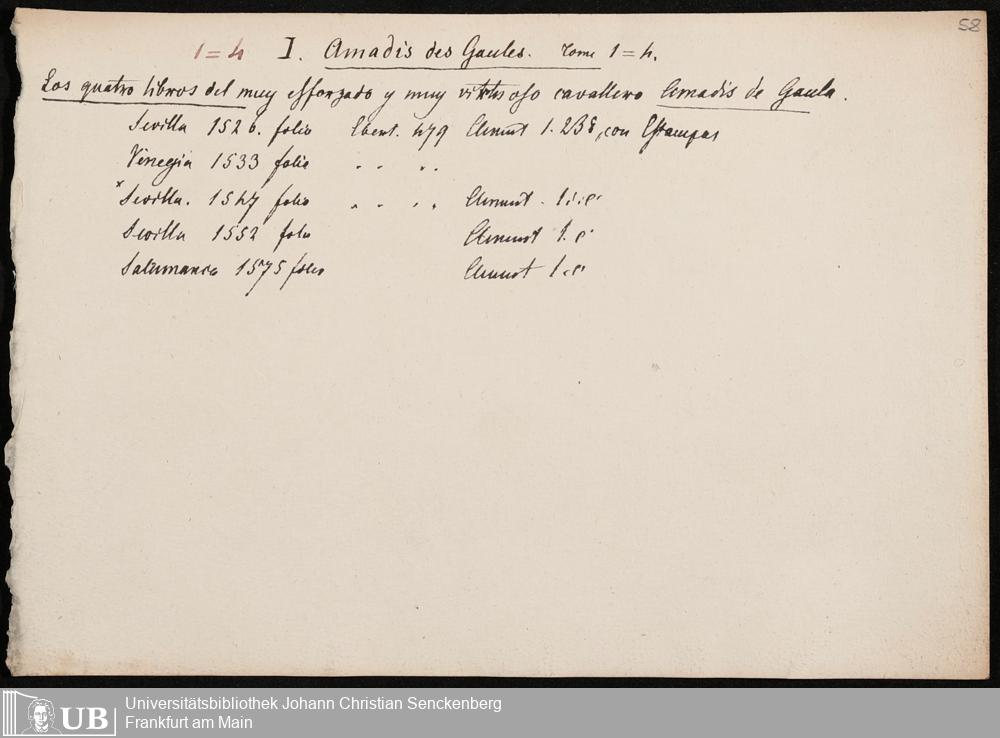 58
1=4 I. Amadis des Gaules. Tome 1=4.
Los quatro libros del muy esforzado y muy virtuoso cavallero Amadis de Gaula.
Sevilla 1526. folio Ebert. 479 Clement 1. 238, con Estampas
Venegia 1533 folio " " " "
* Sevilla. 1547 folio " " " " Clement. 1. c.
Sevilla 1552 folio Clement 1. c.
Salamanca 1575 folio Clement 1. c.
UB
Universitätsbibliothek Johann Christian Senckenberg
Frankfurt am Main